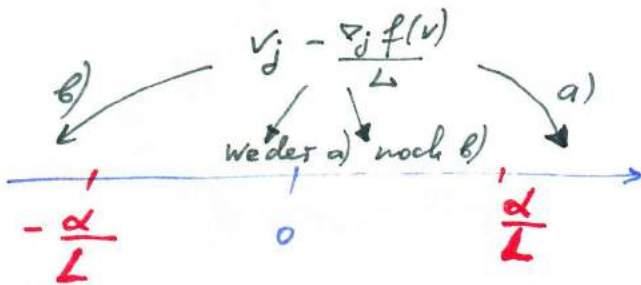 v_j - ∇_j f(v)
L
b)
a)
weder a) noch b)
- α/L
0
α/L